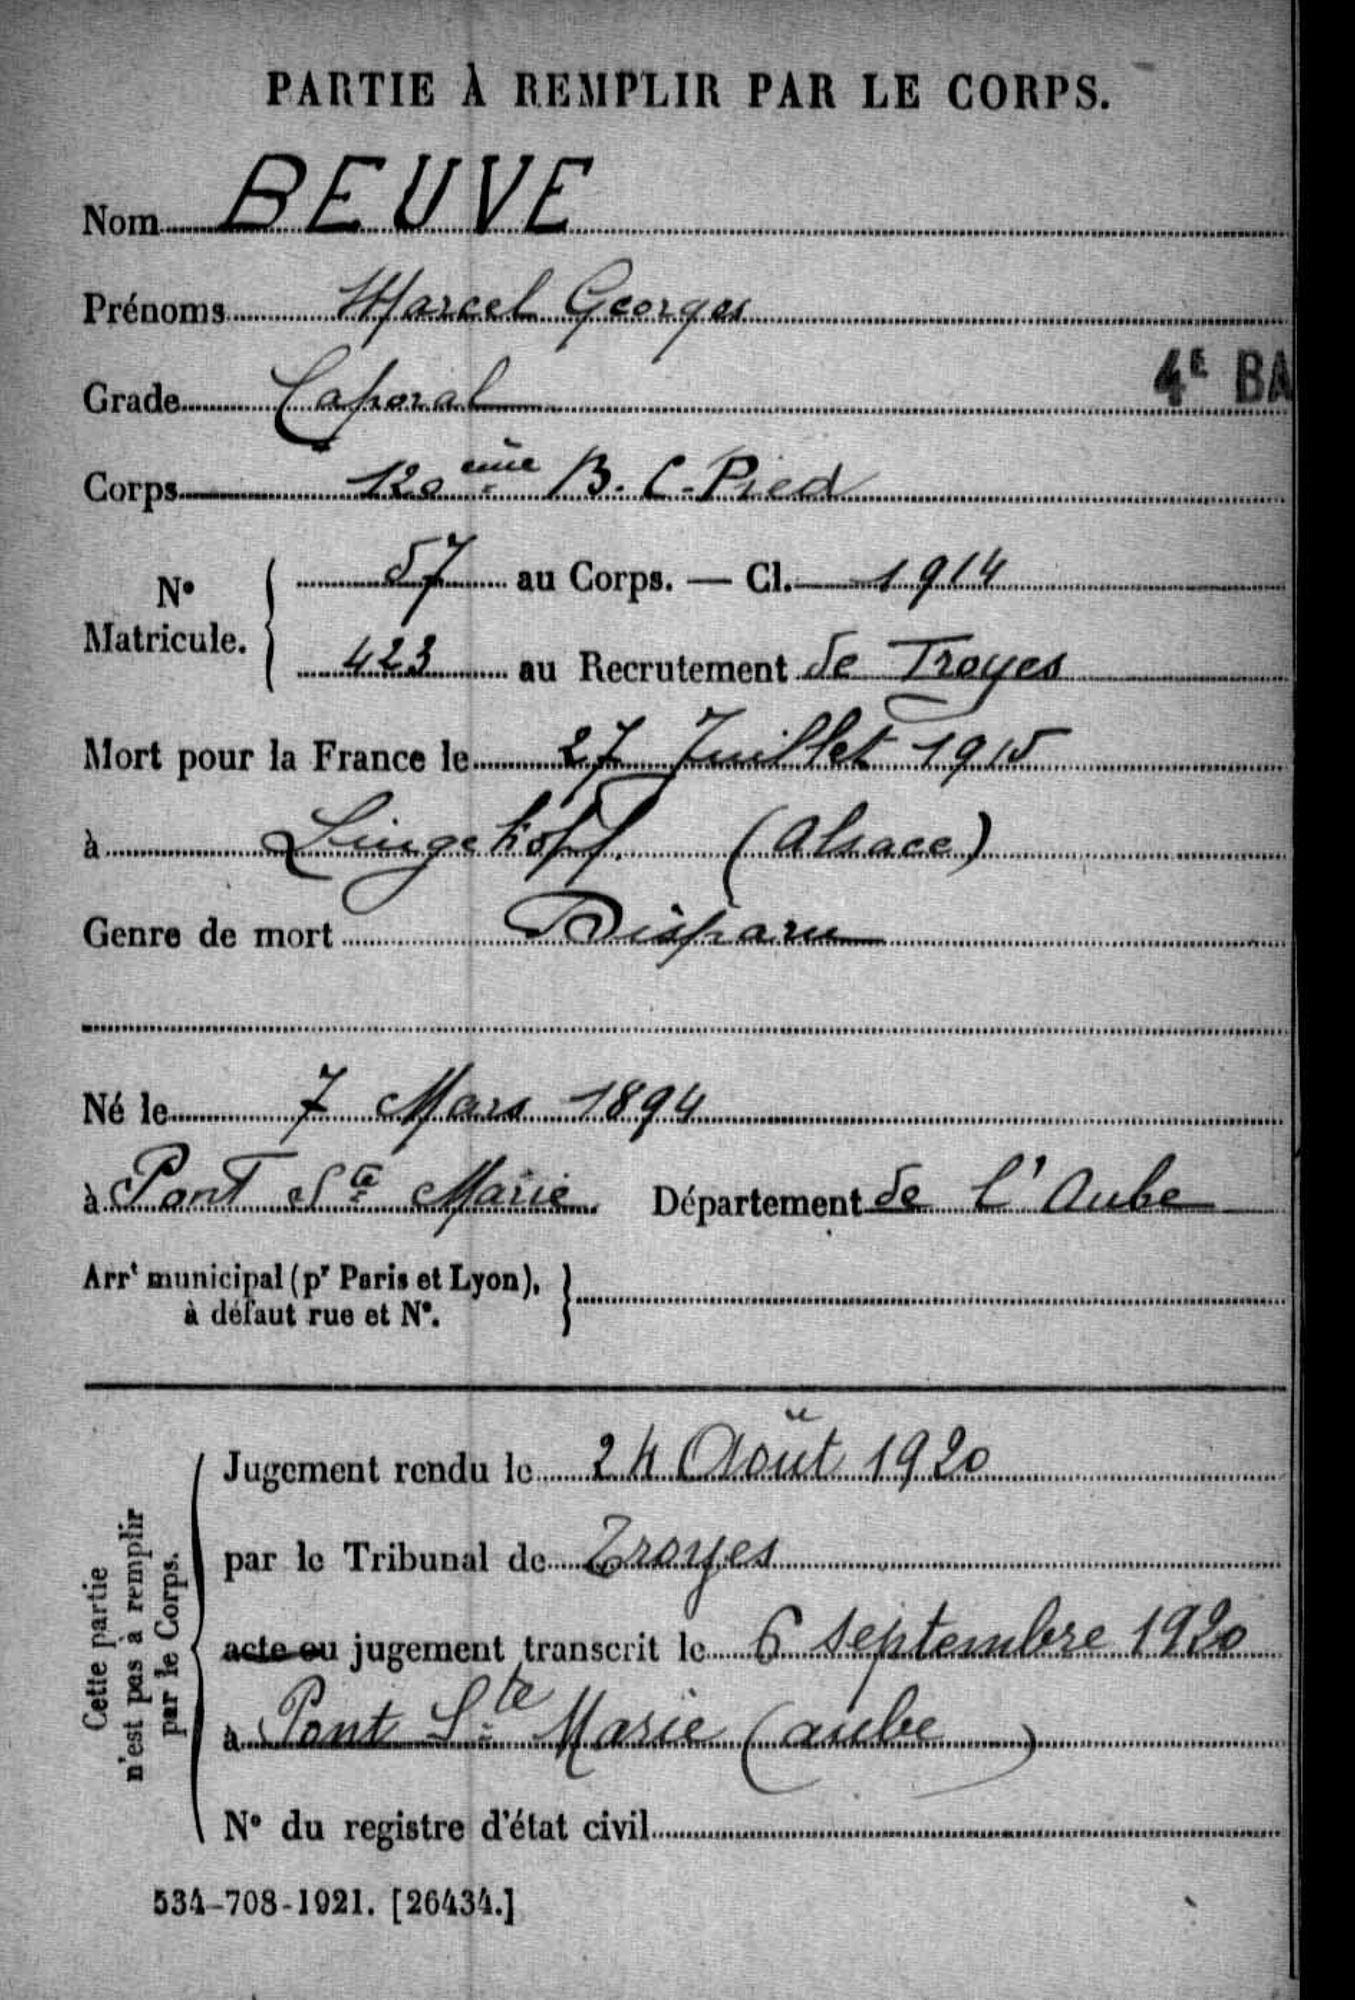 PARTIE À REMPLIR PAR LE CORPS.
Nom BEUVE
Prénoms Marcel Georges
Grade Caporal
4E BA
Corps 120ème B. C. Pied
No Matricule. 57 au Corps. — Cl. 1914
423 au Recrutement de Troyes
Mort pour la France le 27 Juillet 1915
à Lingekopf (Alsace)
Genre de mort Disparu
Né le 7 Mars 1894
à Pont Ste Marie Département de l'Aube
Arrt municipal (pr Paris et Lyon),
à défaut rue et No.
Cette partie
n'est pas à remplir
par le Corps.
Jugement rendu le 24 Août 1920
par le Tribunal de Troyes
acte ou jugement transcrit le 6 septembre 1920
à Pont Ste Marie (aube)
No du registre d'état civil
534-708-1921. [26434.]